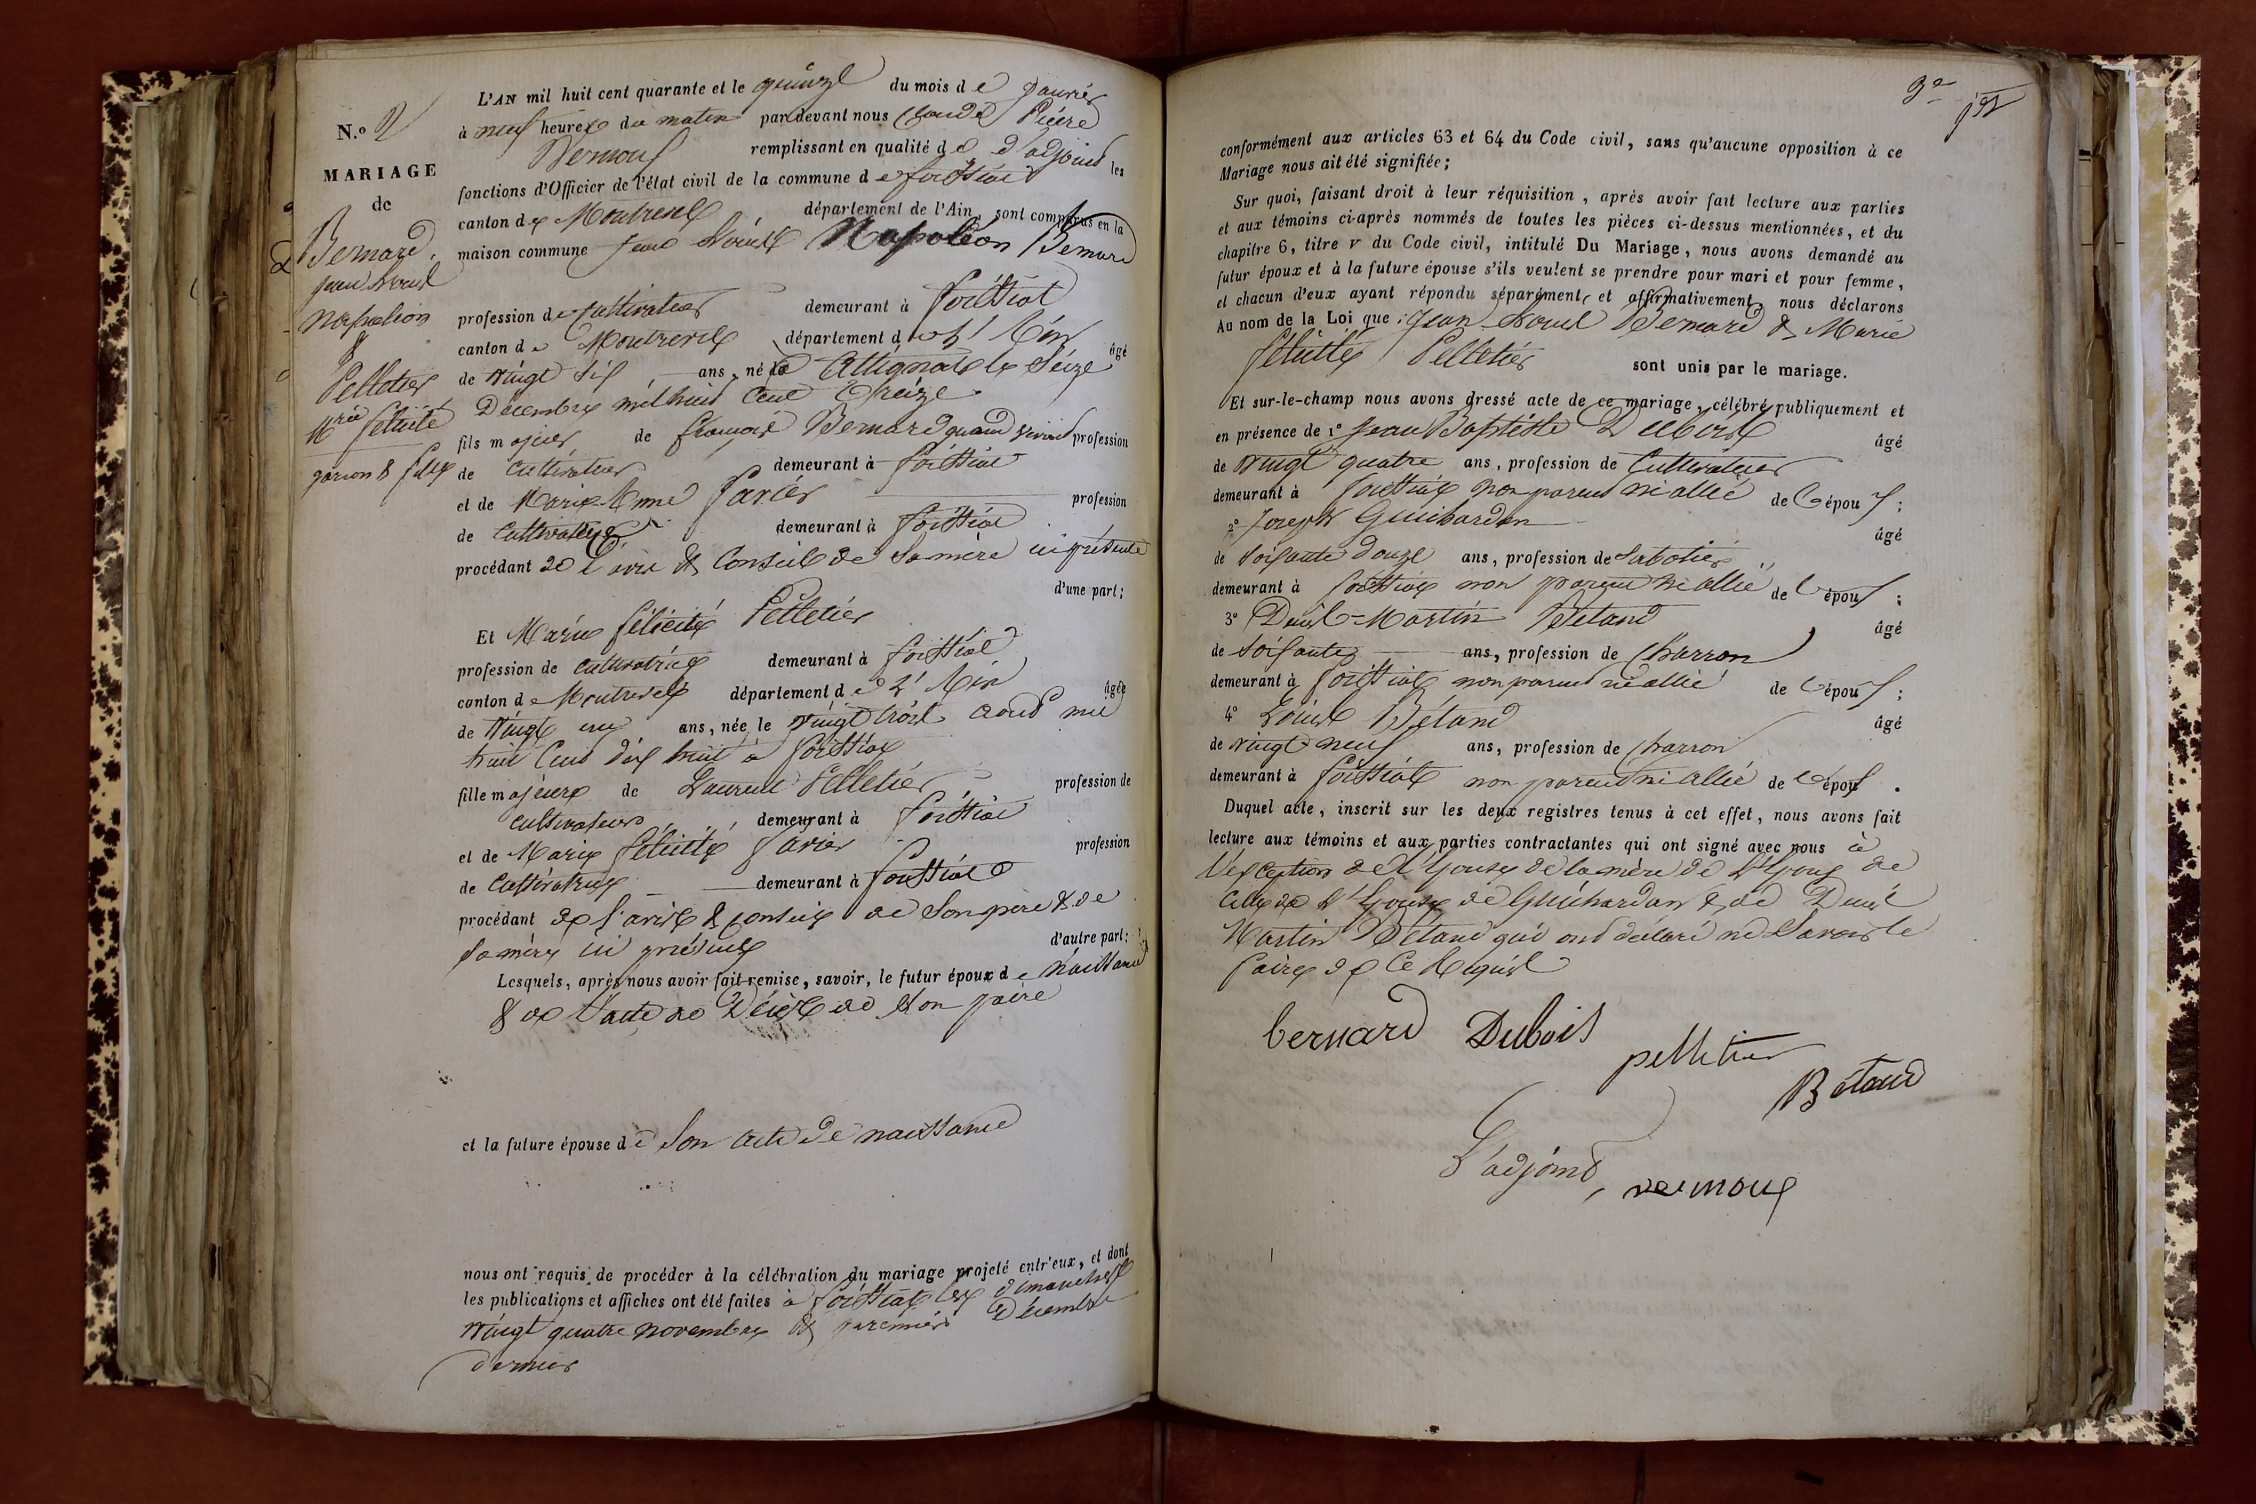 N.o 2
MARIAGE
de
Bernard
jean Louis
napoléon
&
Pelletier
Mrie félicité
garçon & fille
L'AN mil huit cent quarante et le quinze du mois de Janvier
à neuf heures du matin par devant nous Claude Pierre
Vermoux remplissant en qualité de d'adjoint les
fonctions d'Officier de l'état civil de la commune de foissiat
canton de Montrevel département de l'Ain sont comparus en la
maison commune Jean Louis Napoléon Bernard
profession de cultivateur demeurant à foissiat
canton de Montrevel département de l'Ain âgé
de vingt six ans, né à Attignat le Seize
Décembre mil huit cent treize
fils majeur de françois Bernard quand vivait profession
de cultivateur demeurant à foissiat
et de Marie Anne favier profession
de cultivatrice demeurant à foissiat
procédant de l'avis & Conseil de sa mère ici présente
d'une part;
Et Marie félicité Pelletier
profession de cultivatrice demeurant à foissiat
canton de Montrevel département de l'Ain âgée
de vingt un ans, née le vingt trois aout mil
huit cent dix huit à foissiat
fille majeure de Laurent Pelletier profession de
cultivateur demeurant à foissiat
et de Marie félicité favier profession
de cultivatrice demeurant à foissiat
procédant de l'avis & conseil de son père & de
sa mère ici présents d'autre part:
Lesquels, après nous avoir fait remise, savoir, le futur époux de naissance
& de l'acte de Décès de son père
et la future épouse de son acte de naissance
nous ont requis de procéder à la célébration du mariage projeté entr'eux, et dont
les publications et affiches ont été faites à foissiat les dimanches
vingt quatre novembre & premier Décembre
dernier
conformément aux articles 63 et 64 du Code civil, sans qu'aucune opposition à ce
Mariage nous ait été signifiée;
Sur quoi, faisant droit à leur réquisition, après avoir fait lecture aux parties
et aux témoins ci-après nommés de toutes les pièces ci-dessus mentionnées, et du
chapitre 6, titre v du Code civil, intitulé Du Mariage, nous avons demandé au
futur époux et à la future épouse s'ils veulent se prendre pour mari et pour femme,
et chacun d'eux ayant répondu séparément et affirmativement, nous déclarons
Au nom de la Loi que: Jean Louis Bernard & Marie
félicité Pelletier sont unis par le mariage.
Et sur-le-champ nous avons dressé acte de ce mariage, célébré publiquement et
en présence de 1o Jean Baptiste Dubois âgé
de vingt quatre ans, profession de Cultivateur
demeurant à foissiat non parent ni allié de l'époux;
2o Joseph Guichardan âgé
de soixante douze ans, profession de sabotier
demeurant à foissiat non parent ni allié de l'époux;
3o Denis Martin Bétand âgé
de soixante ans, profession de Charron
demeurant à foissiat non parent ni allié de l'époux;
4o Louis Bétand âgé
de vingt neuf ans, profession de Charron
demeurant à foissiat non parent ni allié de l'époux.
Duquel acte, inscrit sur les deux registres tenus à cet effet, nous avons fait
lecture aux témoins et aux parties contractantes qui ont signé avec nous à
l'exception de l'épouse de la mère de l'époux de
celle de l'épouse de Guichardan & de Denis
Martin Bétand qui ont déclaré ne savoir le
faire de ce Requis
bernard Dubois
pelletier
Bétand
L'adjoint, vermoux